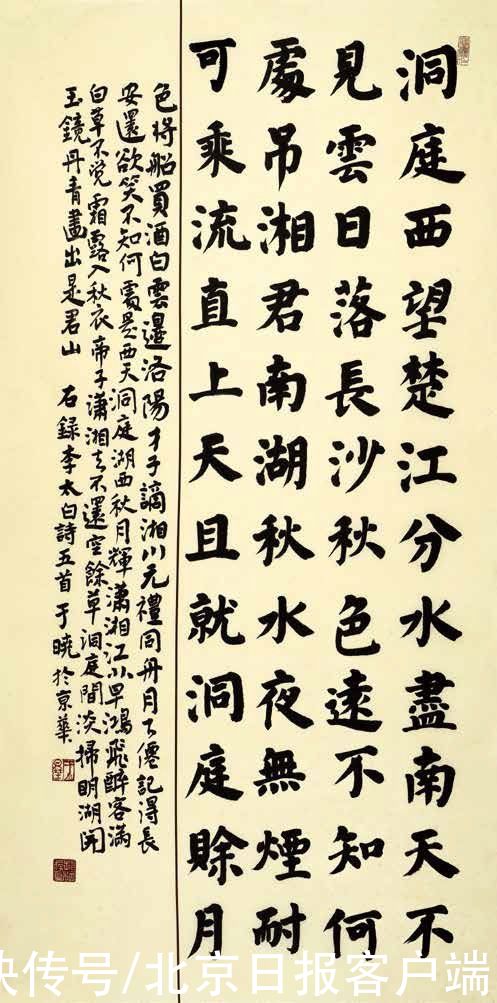 洞庭西望楚江分水盡南天不
見雲日落長沙秋色遠不知何
處吊湘君南湖秋水夜無煙耐
可乘流直上天且就洞庭賒月
色将船買酒白雲邊洛陽才子謫湘川元禮同舟月下僊記得長
安還欲笑不知何處是西天洞庭湖西秋月輝瀟湘江北早鴻飛醉客滿
白草不觉霜露入秋衣帝子瀟湘去不還空餘草洞庭間淡掃明湖開
玉鏡丹青畫出是君山 右録李太白詩五首 于曉於京華
快传号/北京日报客户端